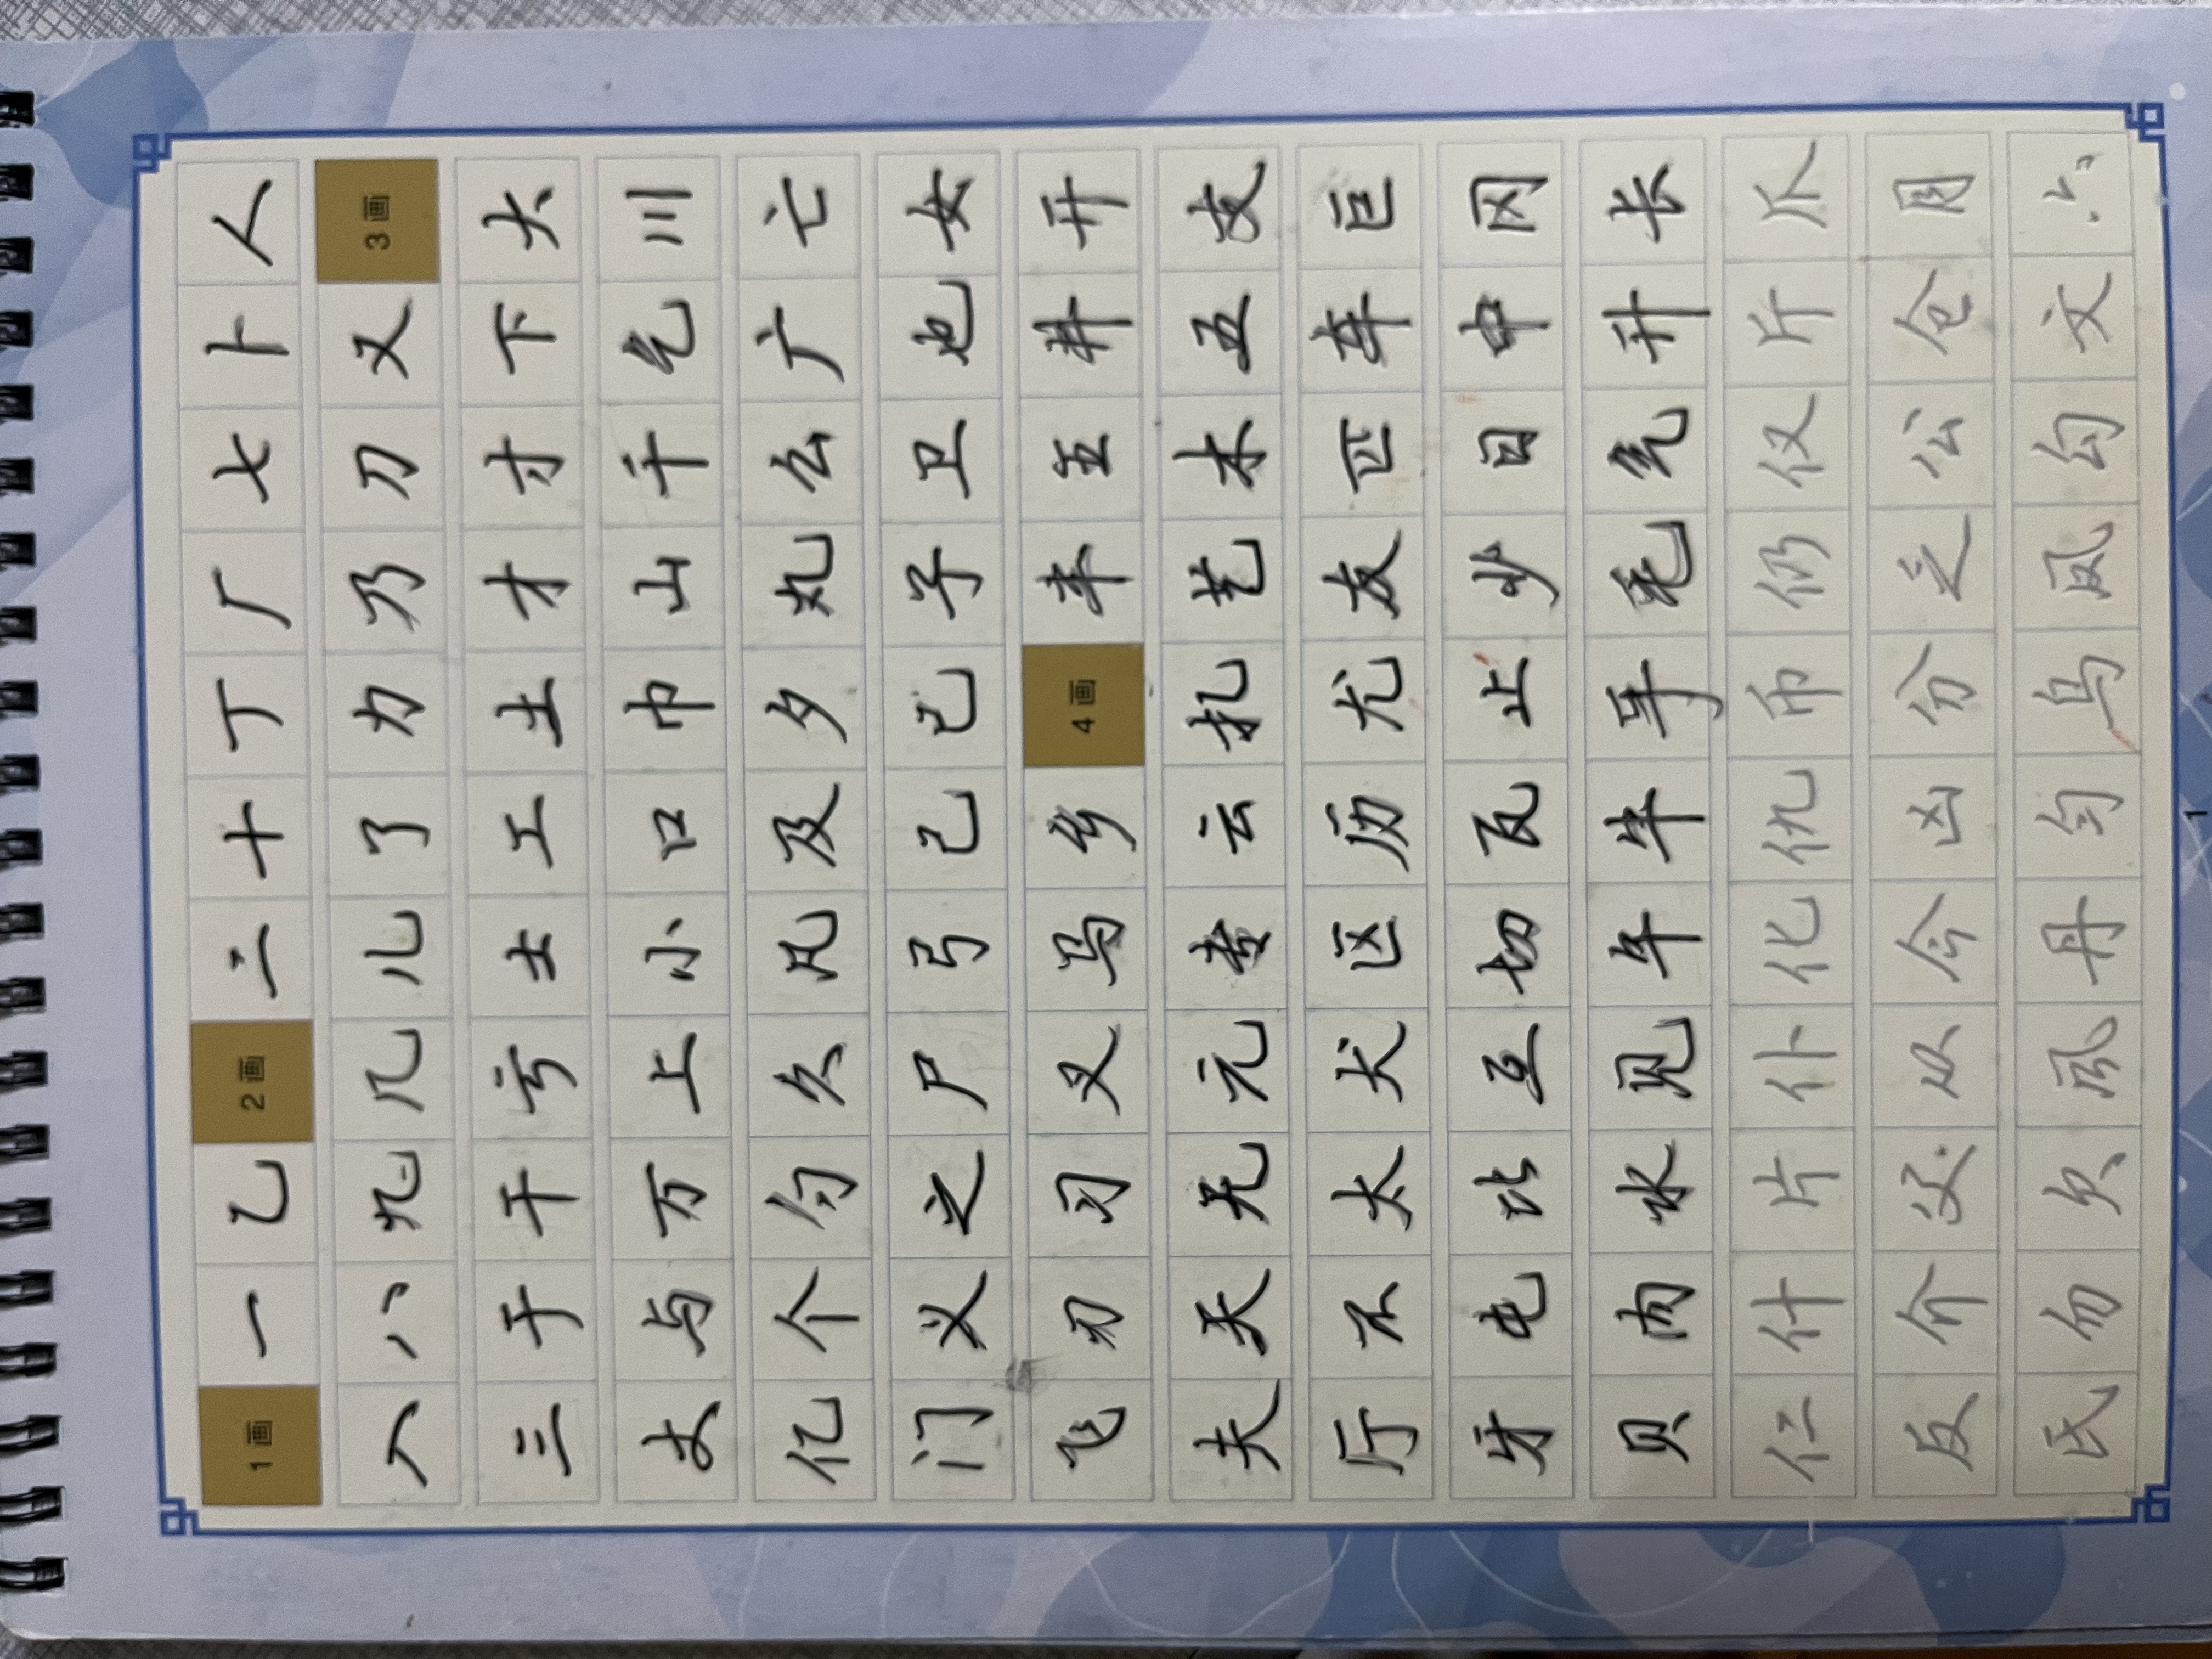 1画一乙2画二十丁厂七卜人
入八九几儿了力乃刀又3画
三于干亏士工土才寸下大
丈与万上小口巾山千乞川
亿个勺久凡及夕丸么广亡
门义之尸弓己已子卫也女
飞刃习叉马乡4画丰王井开
夫天无元专云扎艺木五支
厅不太犬区历尤友匹车巨
牙屯比互切瓦止少日中冈
贝内水见午牛手毛气升长
仁什片仆化仇币仍仅斤爪
反介父从今凶分乏公仓月
氏勿欠风丹匀乌凤勾文六
1